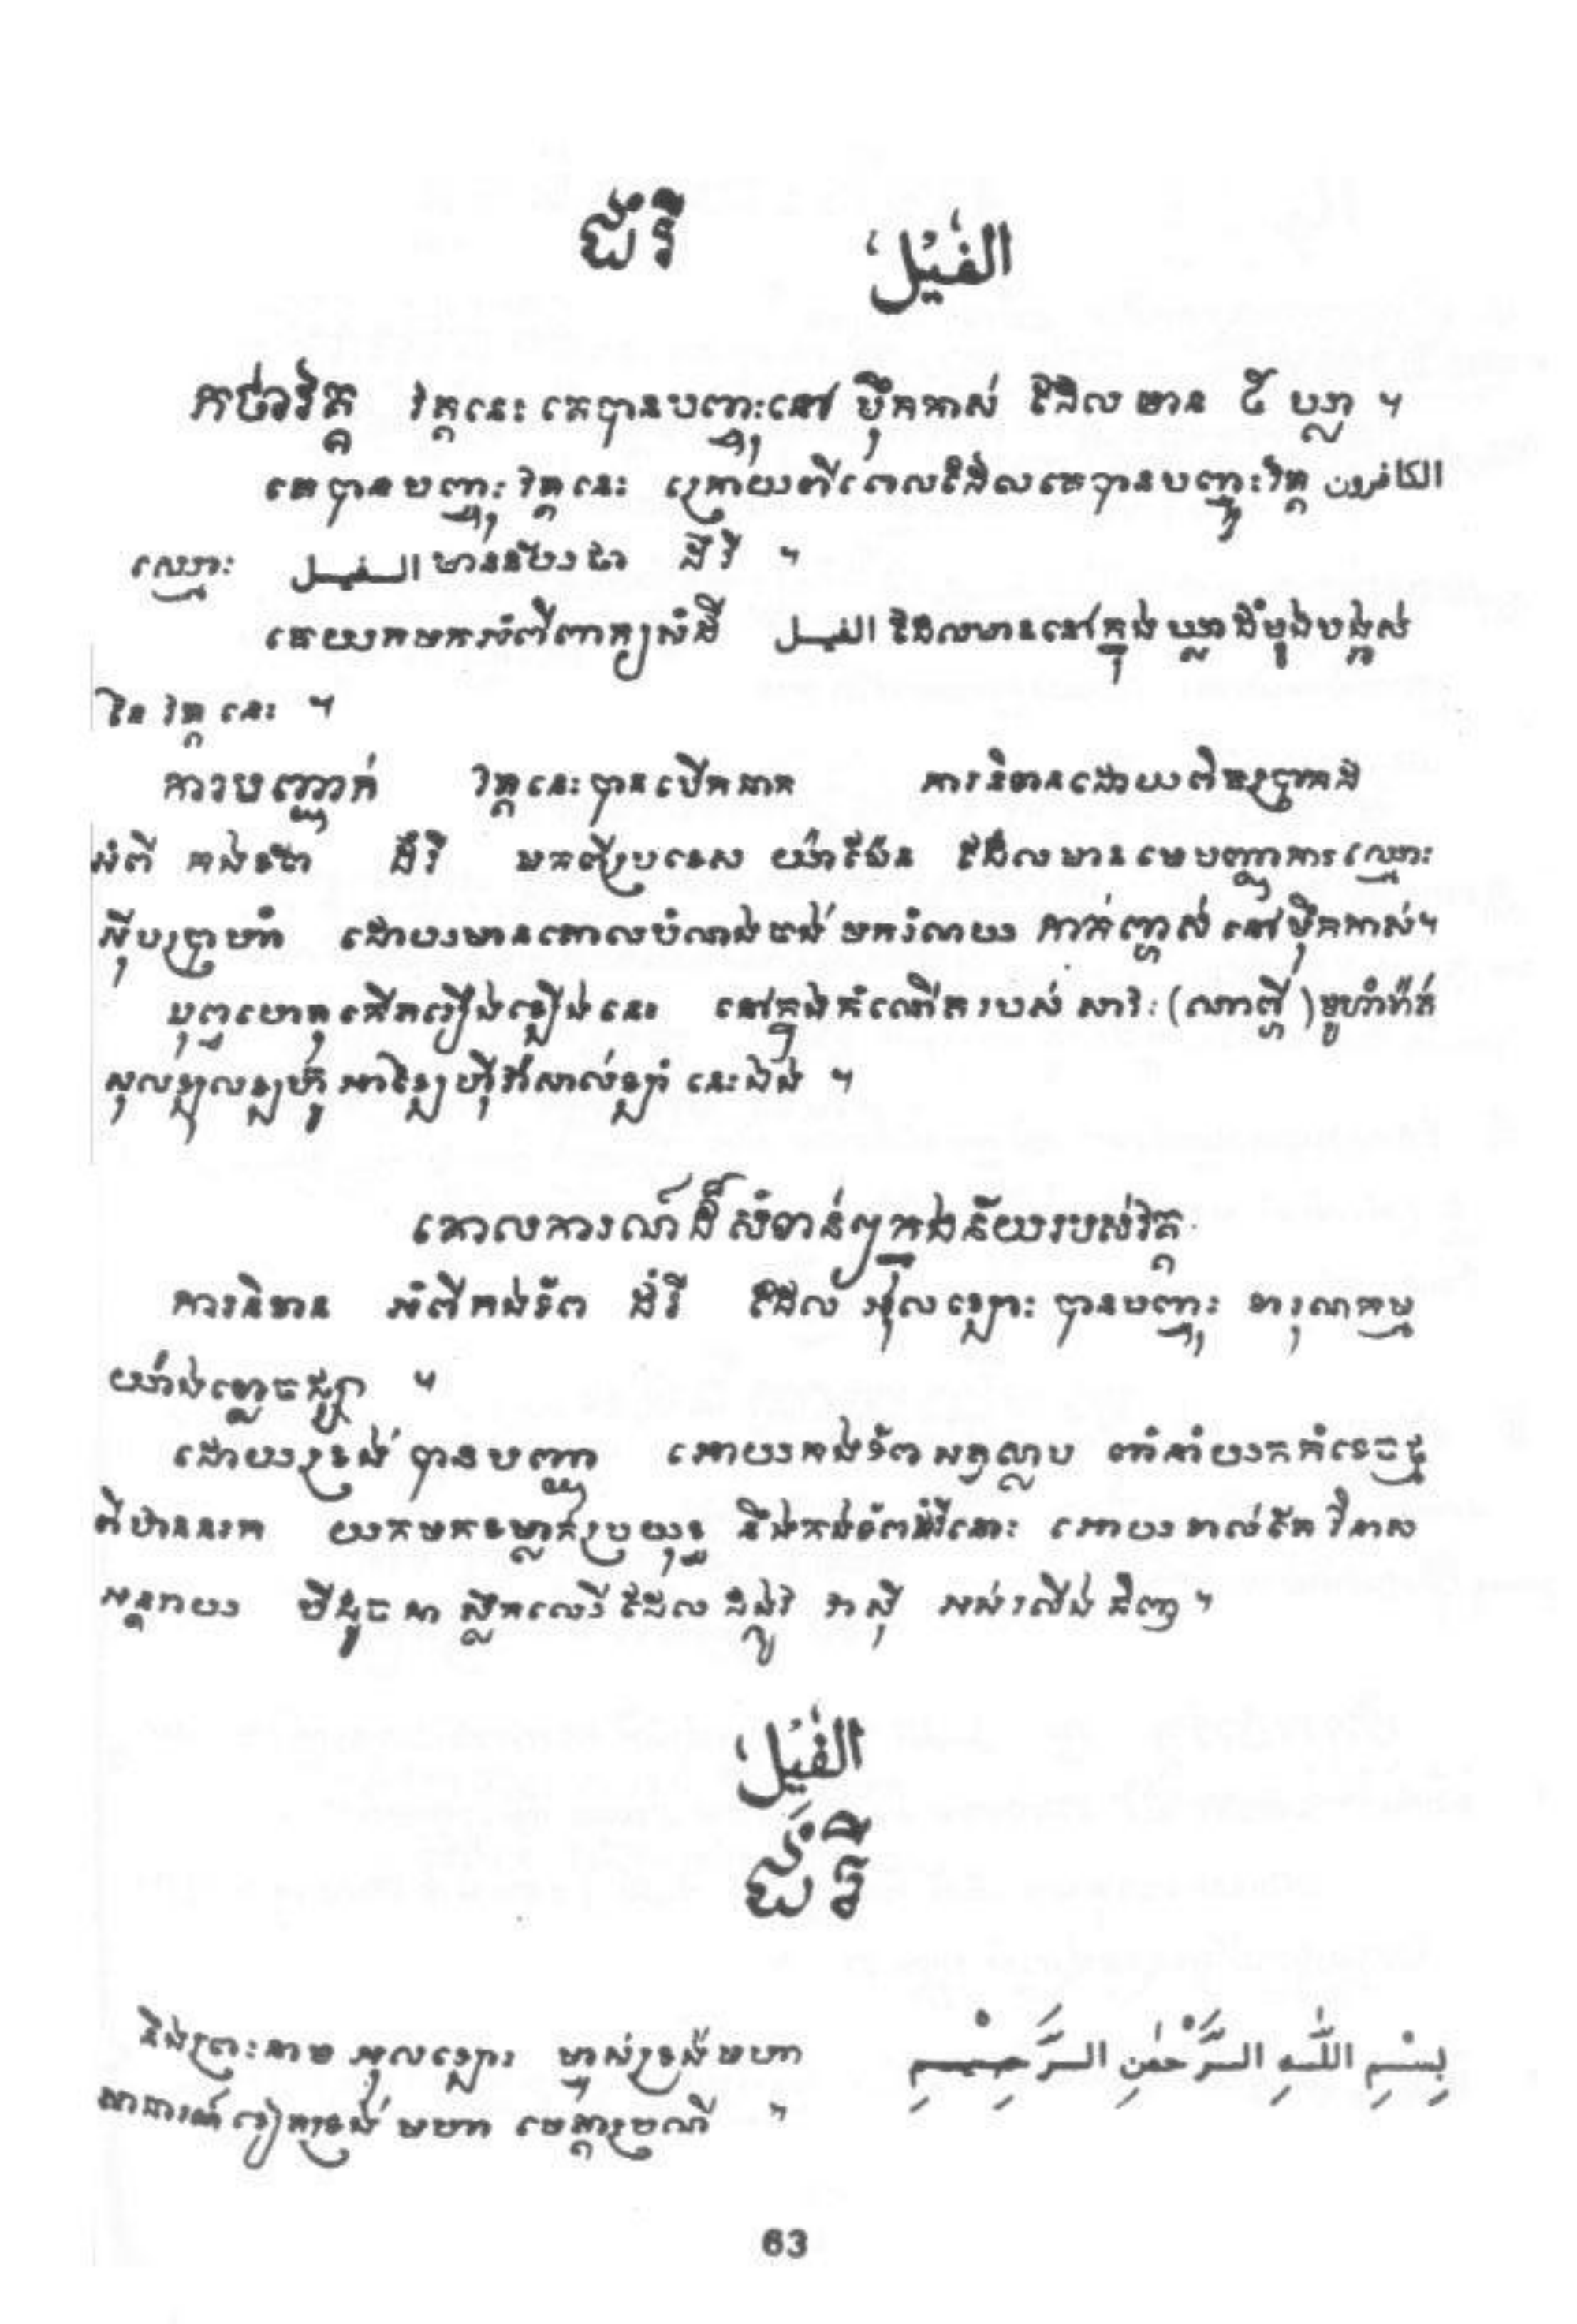 ដំរី الفيل
កថាវគ្គ វគ្គនេះ គេបានបញ្ចុះនៅ ម៉ឹកកាស់ ដែល មាន ៥ ឃ្លា ។
គេបានបញ្ចុះ វគ្គនេះ ក្រោយពីពេលដែលគេបានបញ្ចុះវគ្គ الكافرون
ឈ្មោះ الفيل មានន័យថា ដំរី ។
គេយកមកអំពីពាក្យសំដី الفيل ដែលមាននៅក្នុង ឃ្លាដំបូងបង្អស់
នៃ វគ្គ នេះ ។
ការបញ្ជាក់ វគ្គនេះបានបើកឆាក ការនិទានដោយពិស្តារ
អំពី កងទ័ព ដំរី មកពីប្រទេស យ៉ាម៉ែន ដែលមានមេបញ្ជាការឈ្មោះ
ដោយមានគោលបំណងចង់ មករំលាយ កាក់ហ្ពាស់ នៅម៉ឹកកាស់។
បុព្វហេតុកើតរឿងរ៉ាវនេះ នៅក្នុងកំណើតរបស់ សារ៉ៈ (ណាព្ហី) មូហាំម៉ាត់
នេះឯង ។
គោលការណ៍ដ៏សំខាន់ៗក្នុងន័យរបស់វគ្គ
ការនិទាន អំពីកងទ័ព ដំរី ដែល អុលឡោះ បានបញ្ចុះ ទារុណកម្ម
យ៉ាងខ្លោចផ្សា ។
ដោយទ្រង់ បានបញ្ជា អោយកងទ័ពសត្វស្លាប ពាំនាំយកកំទេចដុំ
ពីឋាននរក យកមកទម្លាក់ប្រយុទ្ធ នឹងកងទ័ពដំរីនោះ អោយទាល់តែវិនាស
អន្តរាយ បីដូចជា ស្លឹកឈើ ដែល ដង្កូវ វាស៊ី អស់រលីងអញ្ចឹង។
الفيل
ដំរី
بِسْمِ اللَّهِ الرَّحْمٰنِ الرَّحِيمِ នឹងព្រះនាម អុលឡោះ ម្ចាស់ទ្រង់មហា
សាធារណ៍ ទៀតទ្រង់ មហា មេត្តាប្រណី ។
63